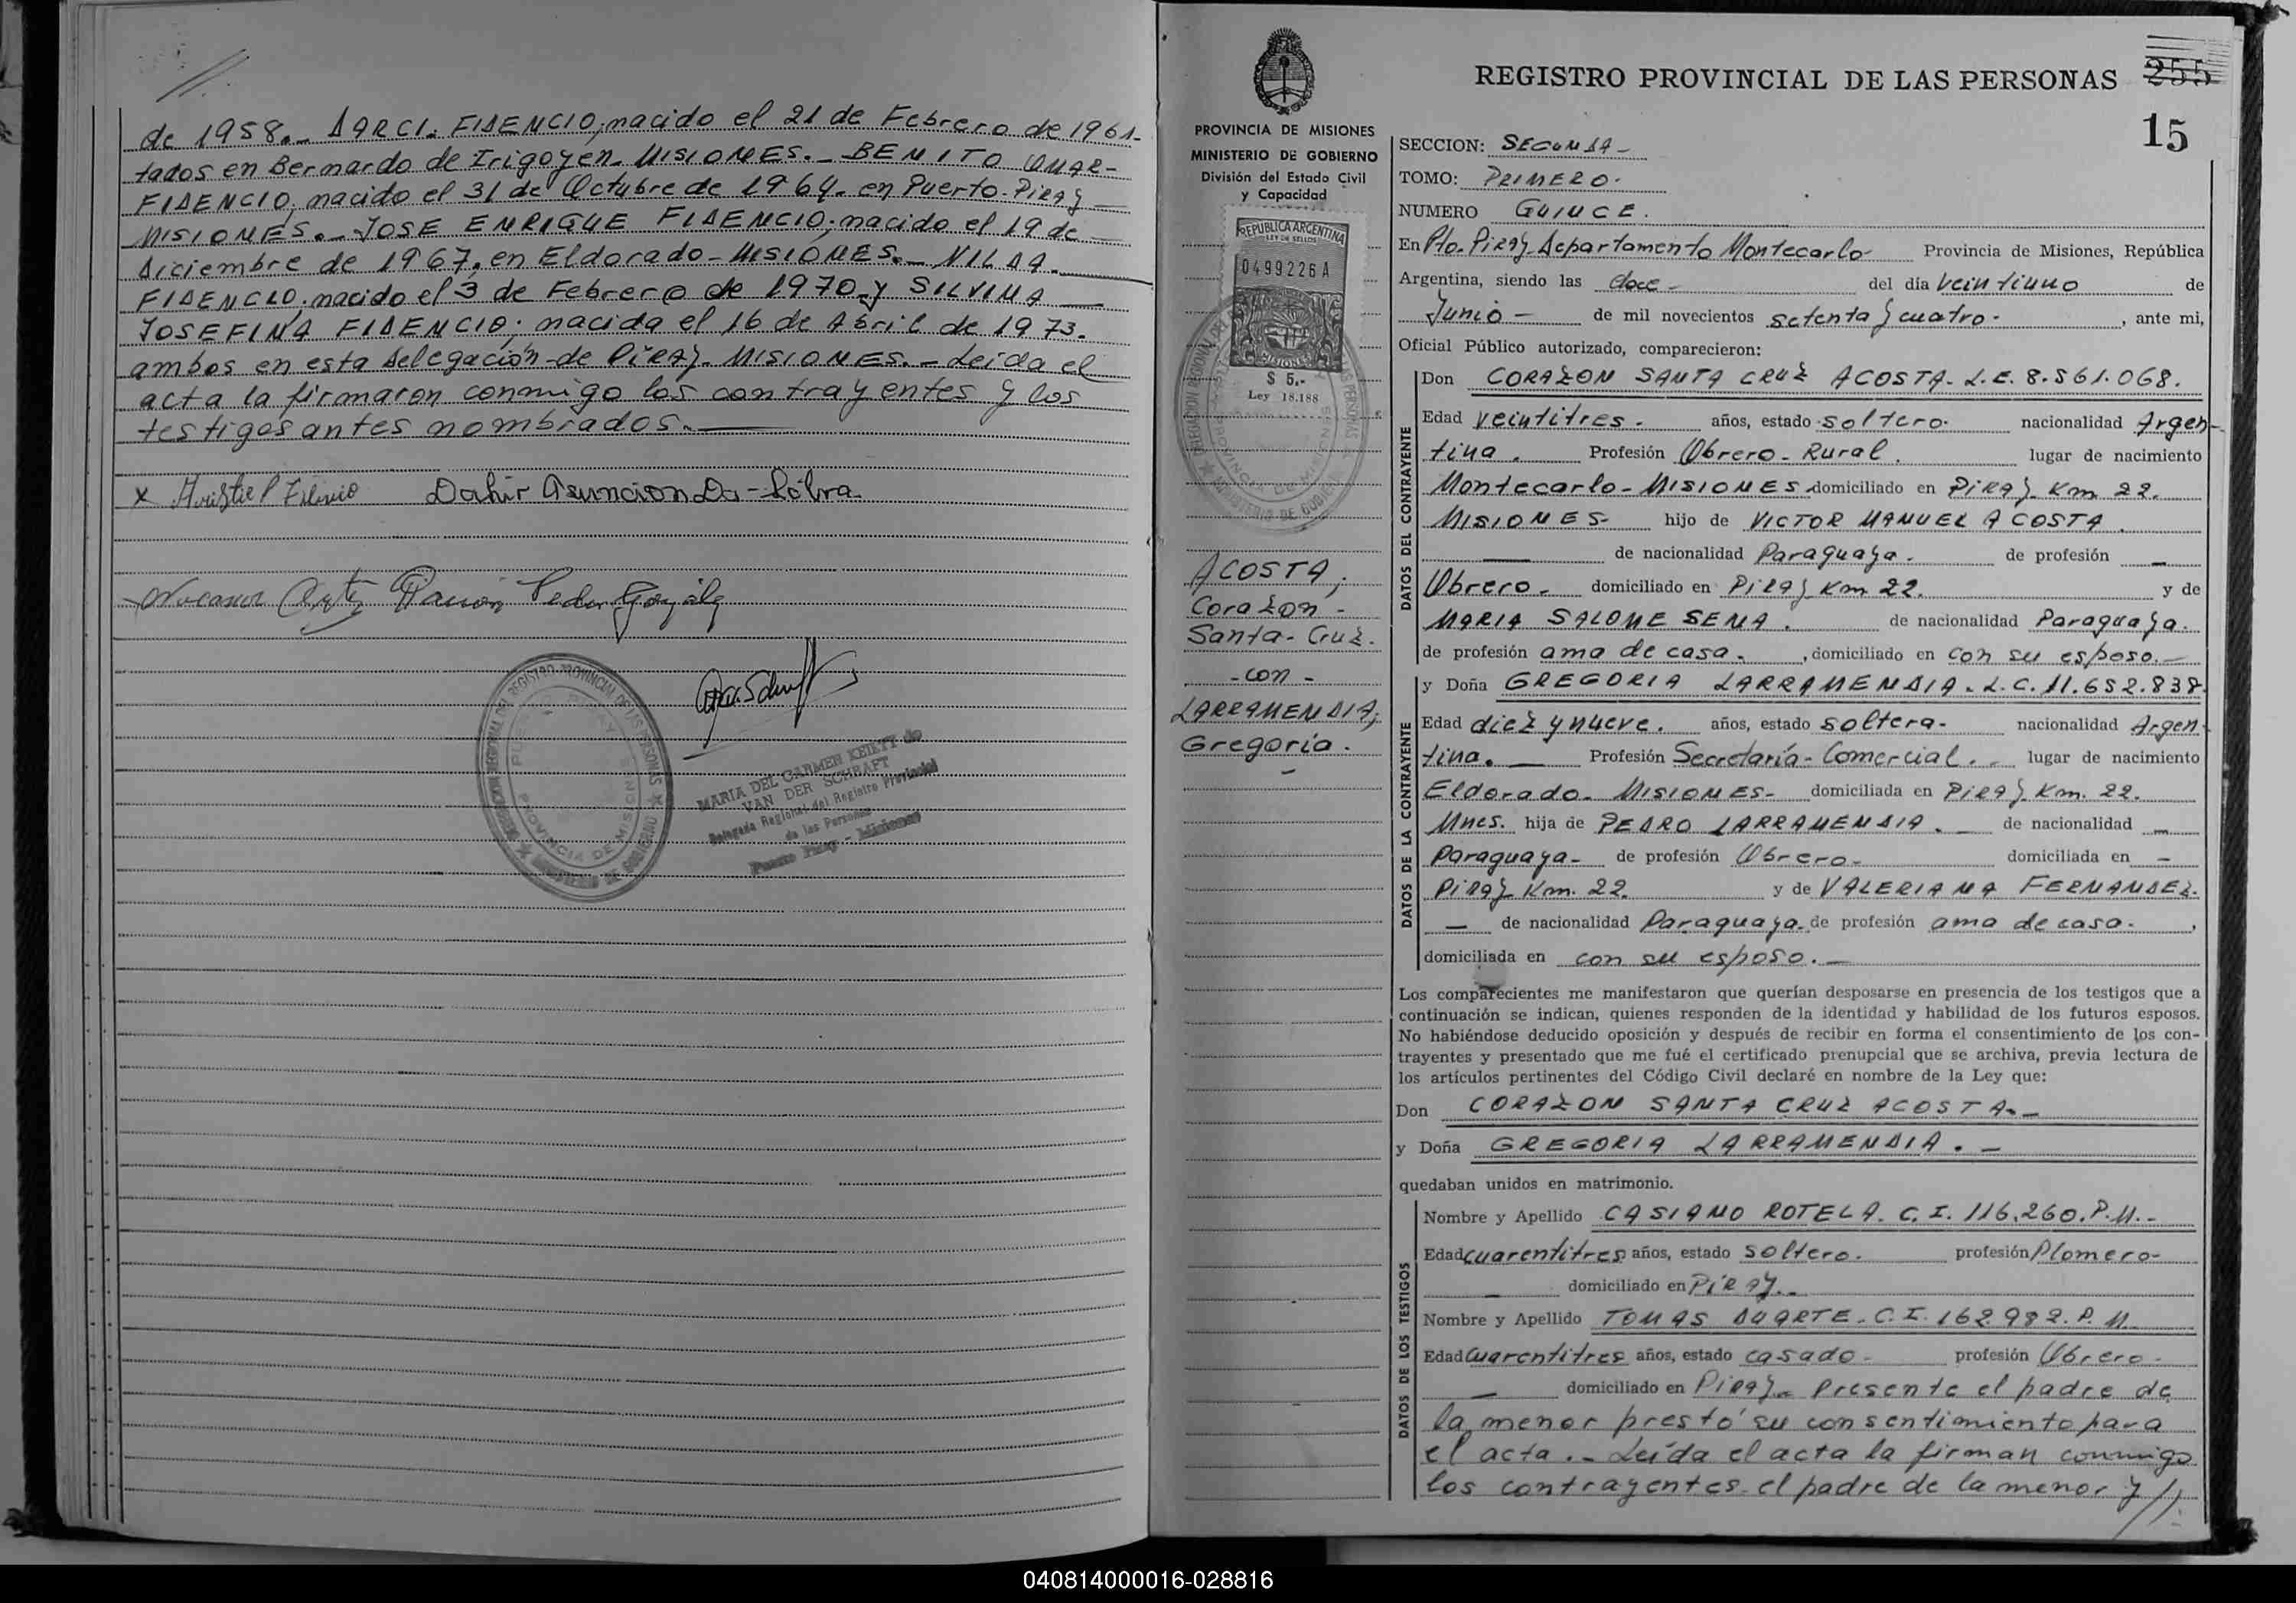 //.
de 1958.- DARCI FIDENCIO, nacido el 21 de Febrero de 1961-
tados en Bernardo de Irigoyen- MISIONES.- BENITO OMAR-
FIDENCIO; nacido el 31 de Octubre de 1964. en Puerto-Piray
MISIONES.- JOSE ENRIQUE FIDENCIO; nacido el 19 de
diciembre de 1967, en Eldorado- MISIONES.- NILDA
FIDENCIO, nacido el 3 de Febrero de 1970. y SILVINA
JOSEFINA FIDENCIO; nacida el 16 de Abril de 1973.
ambos en esta delegación-de Piray- MISIONES.- Leida el
acta la firmaron conmigo los contrayentes y los
testigos antes nombrados.-
Dahir Asuncion Da-Silva
Ramón Pedro
MARIA DEL CARMEN KEIETY de
VAN DER SCHRAFT
Delegada Regional del Registro Provincial
de las Personas
Puerto Piray - Misiones
REGISTRO PROVINCIAL DE LAS PERSONAS
255
15
PROVINCIA DE MISIONES
MINISTERIO DE GOBIERNO
División del Estado Civil
y Capacidad
REPUBLICA ARGENTINA
LEY DE SELLOS
0499226 A
MISIONES
$ 5.-
Ley 18.188
ACOSTA;
Corazon -
Santa- Cruz.
- con -
LARRAMENDIA;
Gregoria.
SECCION: SEGUNDA-
TOMO: PRIMERO.
NUMERO QUINCE.
En Pto-Piray Departamento Montecarlo- Provincia de Misiones, República
Argentina, siendo las doce- del día veintiuno de
Junio- de mil novecientos setenta y cuatro- , ante mi,
Oficial Público autorizado, comparecieron:
DATOS DEL CONTRAYENTE
Don CORAZON SANTA CRUZ ACOSTA- L.E. 8.561.068.
Edad veintitres. años, estado soltero. nacionalidad Argen-
tina. Profesión Obrero- Rural. lugar de nacimiento
Montecarlo- MISIONES domiciliado en Piray Km 22.
MISIONES- hijo de VICTOR MANUEL ACOSTA.
— de nacionalidad Paraguaya. de profesión —
Obrero. domiciliado en Piray Km 22. y de
MARIA SALOME SENA. de nacionalidad Paraguaya.
de profesión ama de casa. , domiciliado en con su esposo.-
y Doña GREGORIA LARRAMENDIA. L.C. 11.652.838.
DATOS DE LA CONTRAYENTE
Edad diez y nueve. años, estado soltera- nacionalidad Argen-
tina. — Profesión Secretaría- Comercial. lugar de nacimiento
Eldorado- MISIONES- domiciliada en Piray Km. 22.
Mnes. hija de PEDRO LARRAMENDIA. — de nacionalidad —
Paraguaya- de profesión Obrero- domiciliada en —
Piray Km. 22. y de VALERIANA FERNANDEZ.
— de nacionalidad Paraguaya. de profesión ama de casa. ,
domiciliada en con su esposo.-
Los comparecientes me manifestaron que querían desposarse en presencia de los testigos que a
continuación se indican, quienes responden de la identidad y habilidad de los futuros esposos.
No habiéndose deducido oposición y después de recibir en forma el consentimiento de los con-
trayentes y presentado que me fué el certificado prenupcial que se archiva, previa lectura de
los artículos pertinentes del Código Civil declaré en nombre de la Ley que:
Don CORAZON SANTA CRUZ ACOSTA.-
y Doña GREGORIA LARRAMENDIA. -
quedaban unidos en matrimonio.
DATOS DE LOS TESTIGOS
Nombre y Apellido CASIANO ROTELA. C.I. 116.260. P.M.-
Edad cuarentitres años, estado soltero. profesión Plomero-
— domiciliado en Piray.-
Nombre y Apellido TOMAS DUARTE. C.I. 162.982. P.M.
Edad Cuarentitres años, estado casado- profesión Obrero-
— domiciliado en Piray.- Presente el padre de
la menor prestó su consentimiento para
el acta.- Leída el acta la firman conmigo
los contrayentes el padre de la menor y //.
040814000016-028816